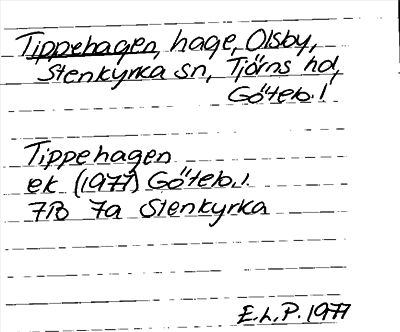 Tippehagen, hage, Olsby,
Stenkyrka sn, Tjörns hd,
Göteb. l
Tippehagen
ek (1977) Göteb. l.
7B 7a Stenkyrka
E.L.P. 1977